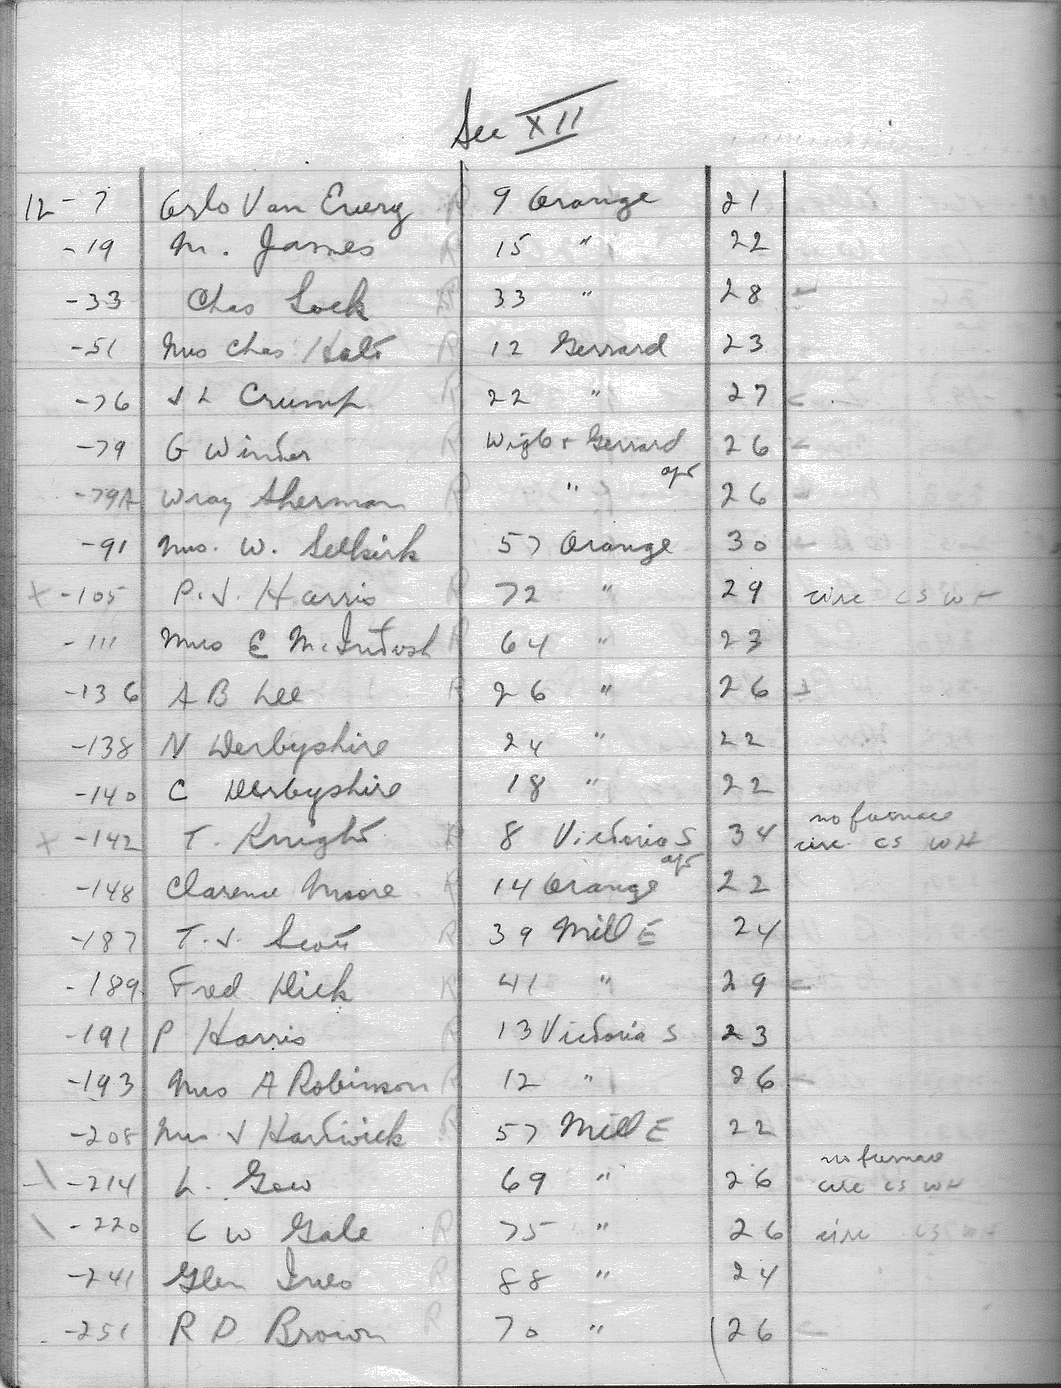 Sec XII
12-7 Orlo Van Every R 9 Orange 21
-19 M. James R 15 " 22
-33 Chas Lock R 33 " 28
-51 Mrs Chas Holt R 12 Gerrard 23
-76 J L Crump R 22 " 27
-79 G Winter R Wigb + Gerrard 26
apt
-79A Wray Sherman R " 26
-91 Mrs. W. Selkirk 57 Orange 30
x -105 P. J. Harris R 72 " 29 circ CS WH
-111 Mrs E McIntosh R 64 " 23
-136 A B Lee R 26 " 26
-138 N Derbyshire 24 " 22
-140 C Derbyshire 18 " 22
no furnace
x -142 T. Knight R 8 Victoria S 34 circ. CS WH
apt
-148 Clarence Moore R 14 Orange 22
-187 T. J. Scott R 39 Mill E 24
-189 Fred Dick R 41 " 29
-191 P Harris R 13 Victoria S 23
-193 Mrs A Robinson R 12 " 26
-208 Mrs J Hardwick R 57 Mill E 22
no furnace
\ -214 L. Gow 69 " 26 circ CS WH
\ -220 C W Gale R 75 " 26 circ CS WH
-241 Glen Ives R 88 " 24
-251 R D Brown R 70 " 26